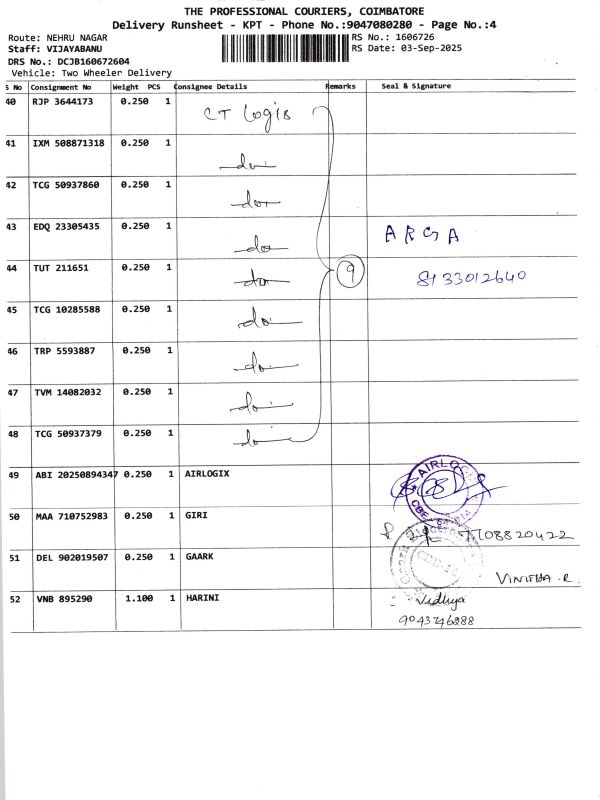 THE PROFESSIONAL COURIERS, COIMBATORE
Delivery Runsheet - KPT - Phone No.:9047080280 - Page No.:4
Route: NEHRU NAGAR RS No.: 1606726
Staff: VIJAYABANU RS Date: 03-Sep-2025
DRS No.: DCJB160672604
Vehicle: Two Wheeler Delivery
S No Consignment No Weight PCS Consignee Details Remarks Seal & Signature
40 RJP 3644173 0.250 1 CT Logis
41 IXM 508871318 0.250 1 do
42 TCG 50937860 0.250 1 do
43 EDQ 23305435 0.250 1 do ARGA
44 TUT 211651 0.250 1 do 9 8133012640
45 TCG 10285588 0.250 1 do
46 TRP 5593887 0.250 1 do
47 TVM 14082032 0.250 1 do
48 TCG 50937379 0.250 1 do
49 ABI 20250894347 0.250 1 AIRLOGIX
50 MAA 710752983 0.250 1 GIRI 7708820422
51 DEL 902019507 0.250 1 GAARK VINITHA.R.
52 VNB 895290 1.100 1 HARINI Vidhya
9043746888